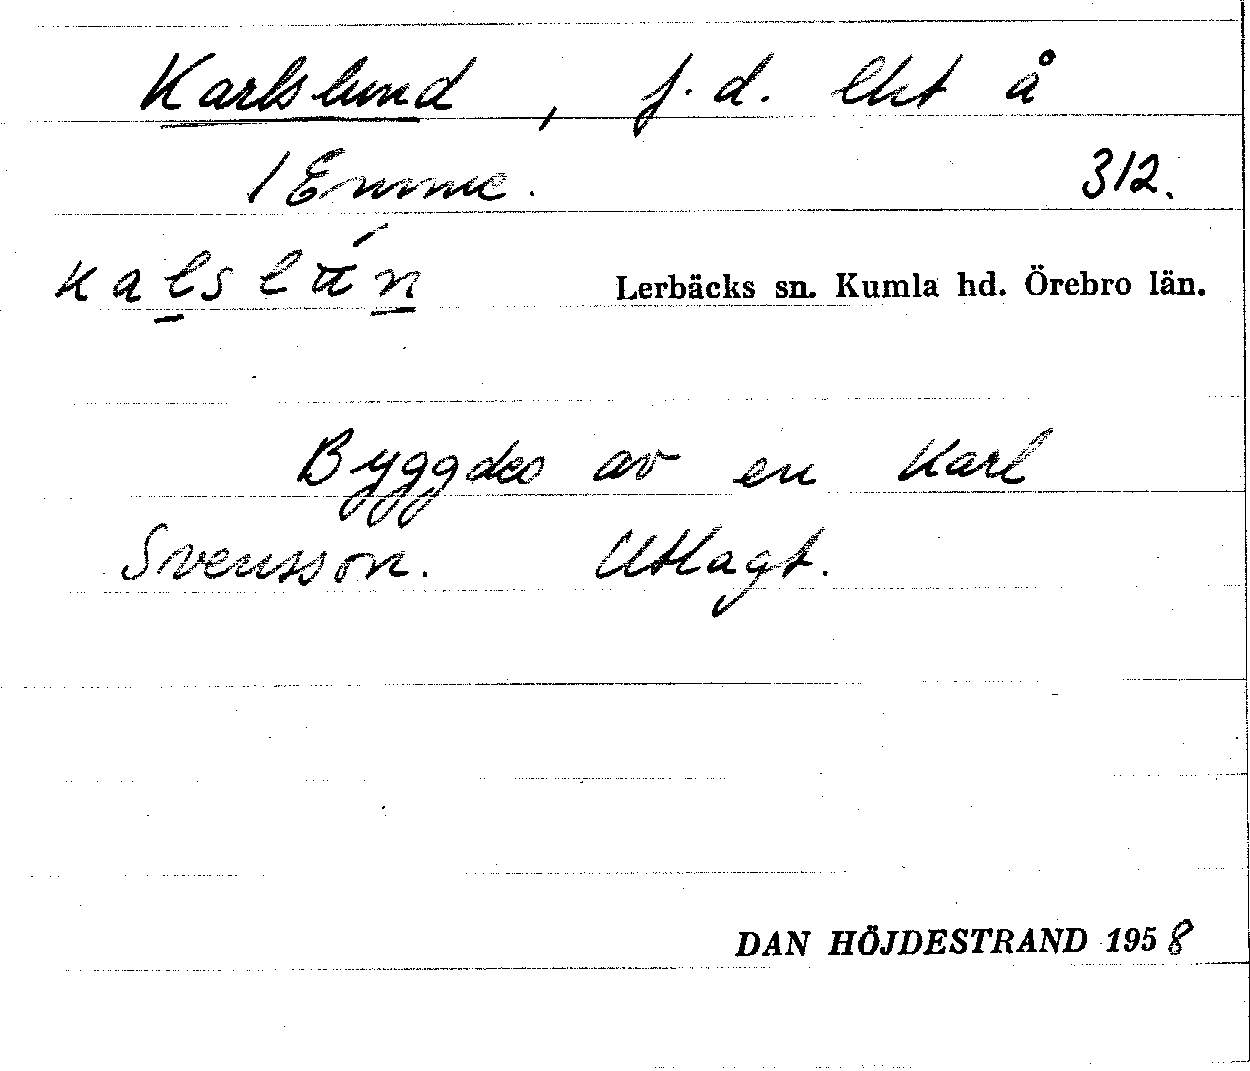 Karlslund, f.d. lht å
1 Emme. 312.
kalslun
Lerbäcks sn. Kumla hd. Örebro län.
Byggdes av en Karl
Svensson. Utlagt.
DAN HÖJDESTRAND 1958